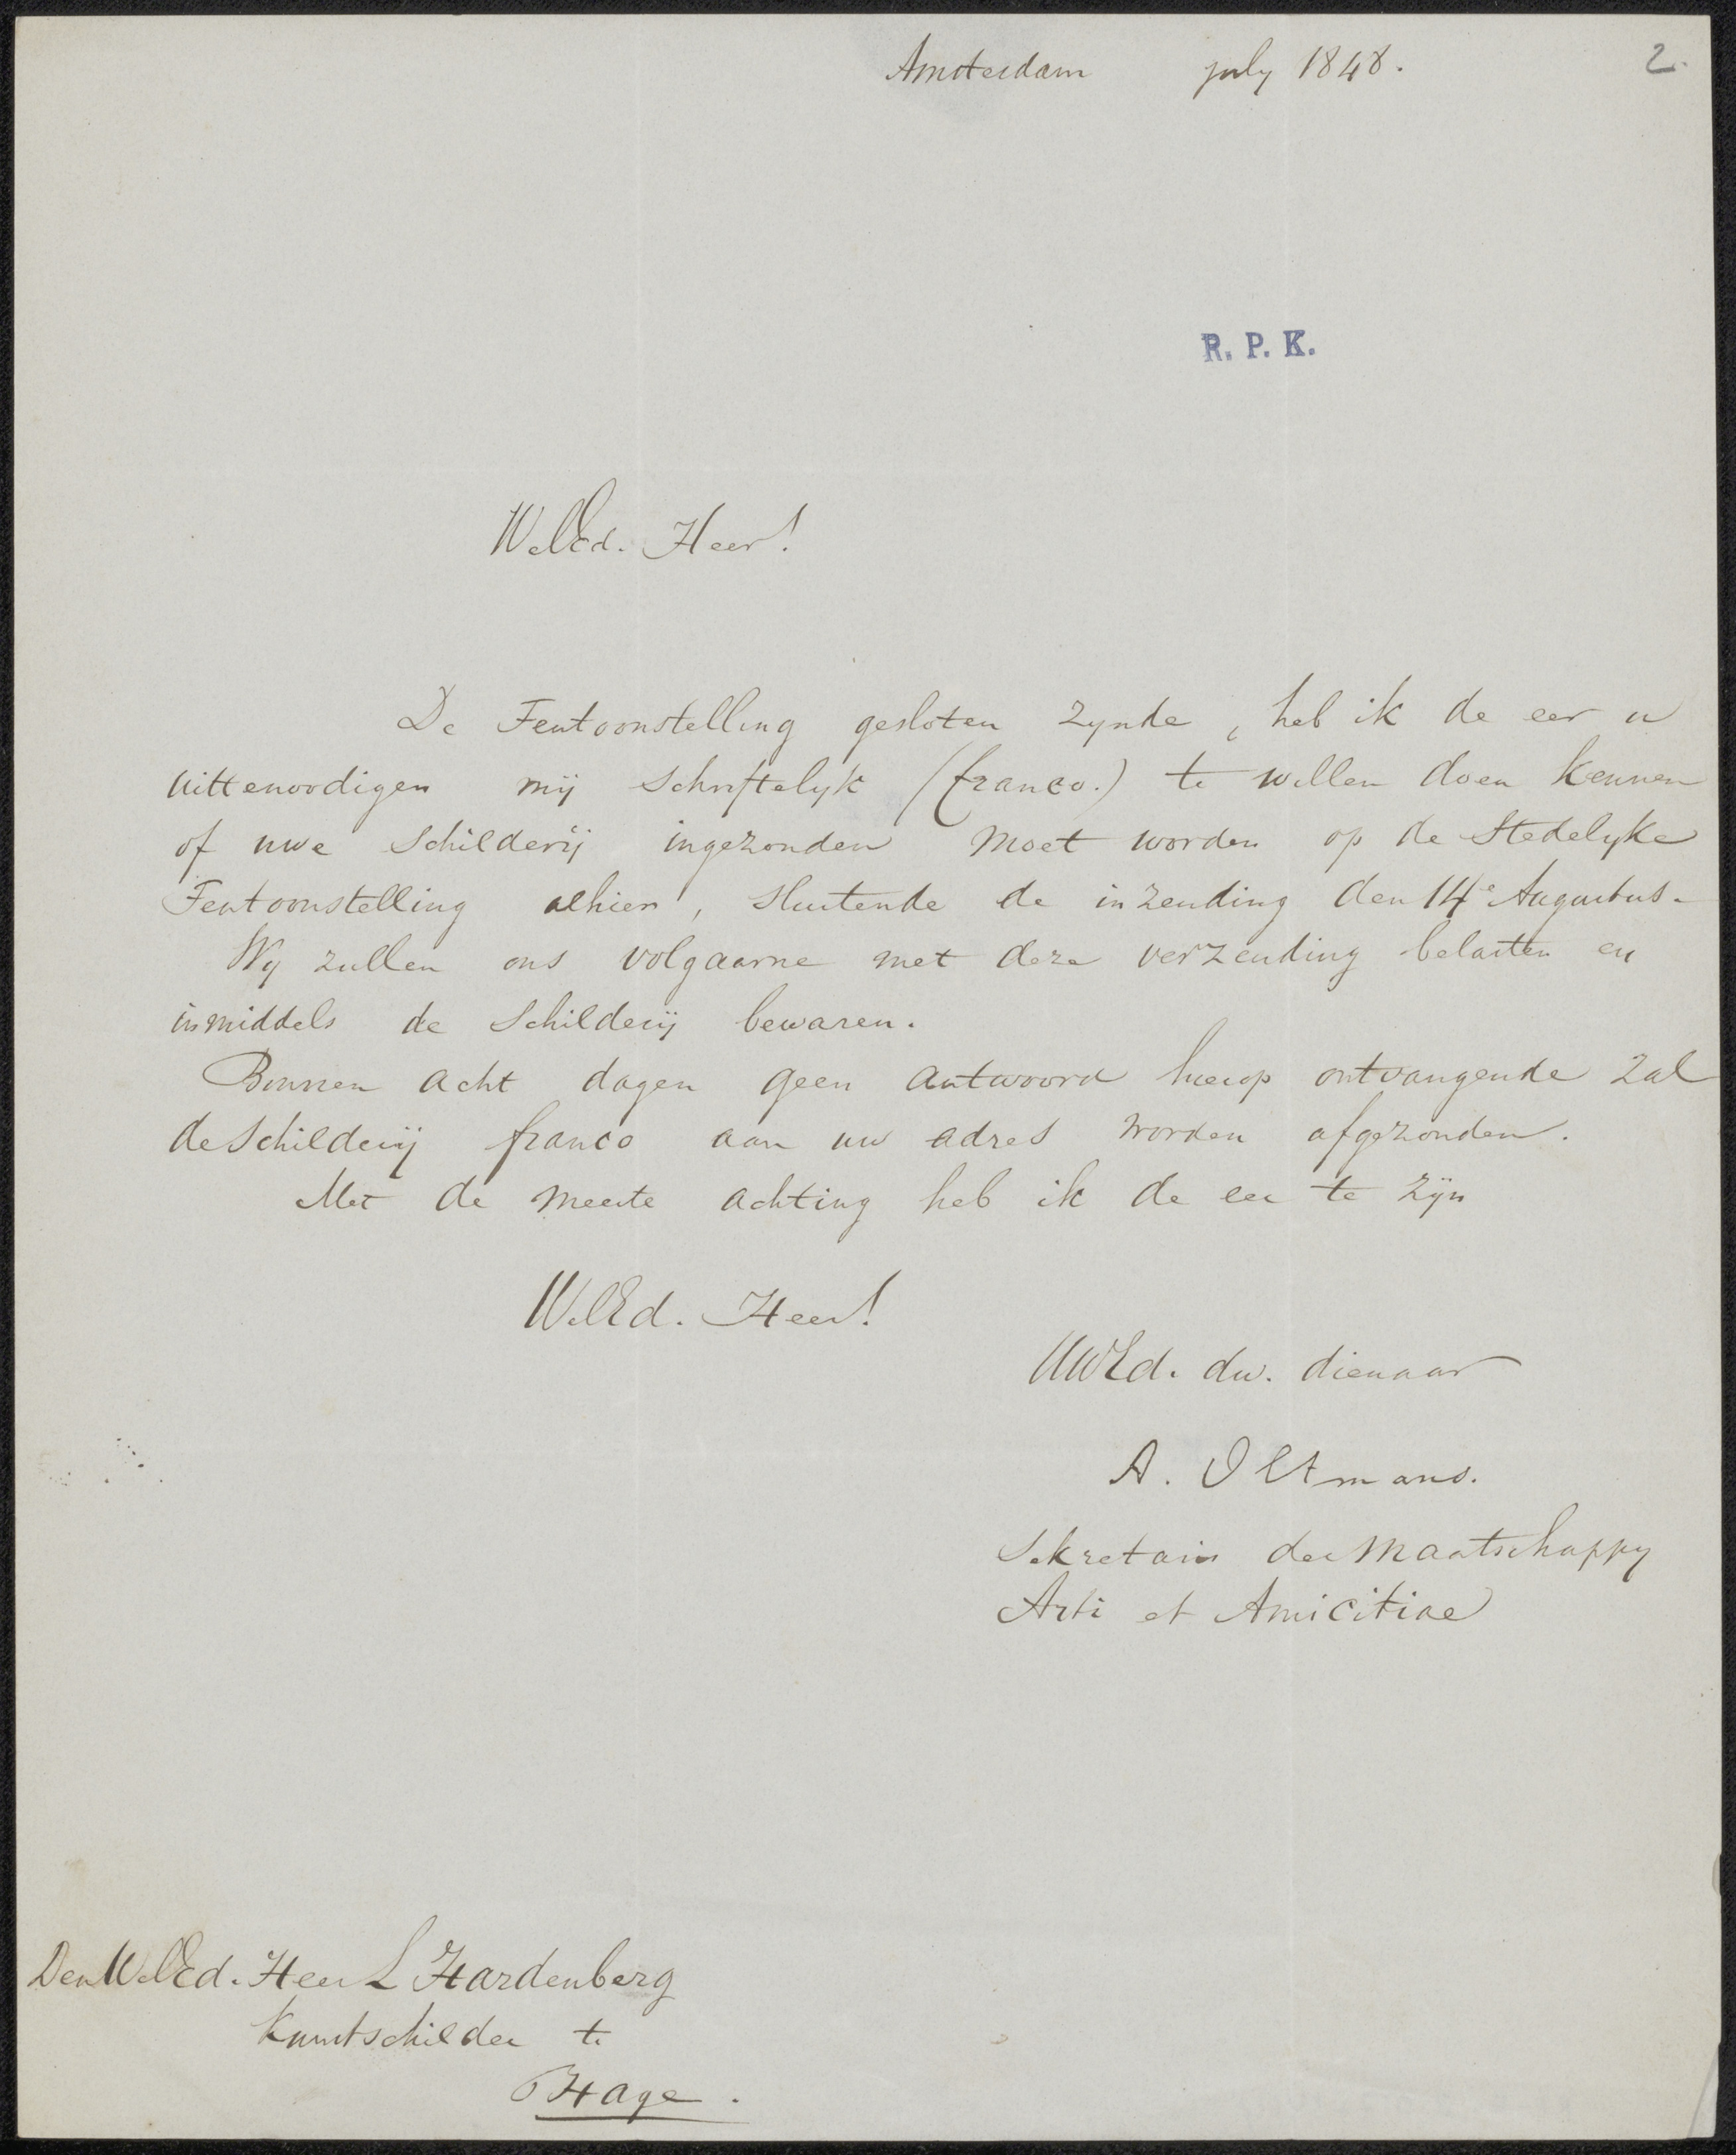 Amsterdam july 1848.
2.
R. P. K.
WelEd. Heer!
De Tentoonstelling gesloten zynde, heb ik de eer u
uittenoodigen mij schriftelyk (franco.) te willen doen kennen
of uwe Schilderij ingezonden moet worden op de Stedelyke
Tentoonstelling alhier, sluitende de inzending den 14e Augustus.
Wy zullen ons volgaarne met deze verzending belasten en
inmiddels de Schilderij bewaren.
Binnen acht dagen geen antwoord hierop ontvangende zal
de Schilderij franco aan uw adres worden afgezonden.
Met de meeste achting heb ik de eer te zijn
WelEd. Heer!
UWEd. dw. dienaar
A. Oltmans.
Sekretaris der Maatschappy
Arti et Amicitiae
Den WelEd. Heer L Hardenberg
Kunstschilder te
'sHage.